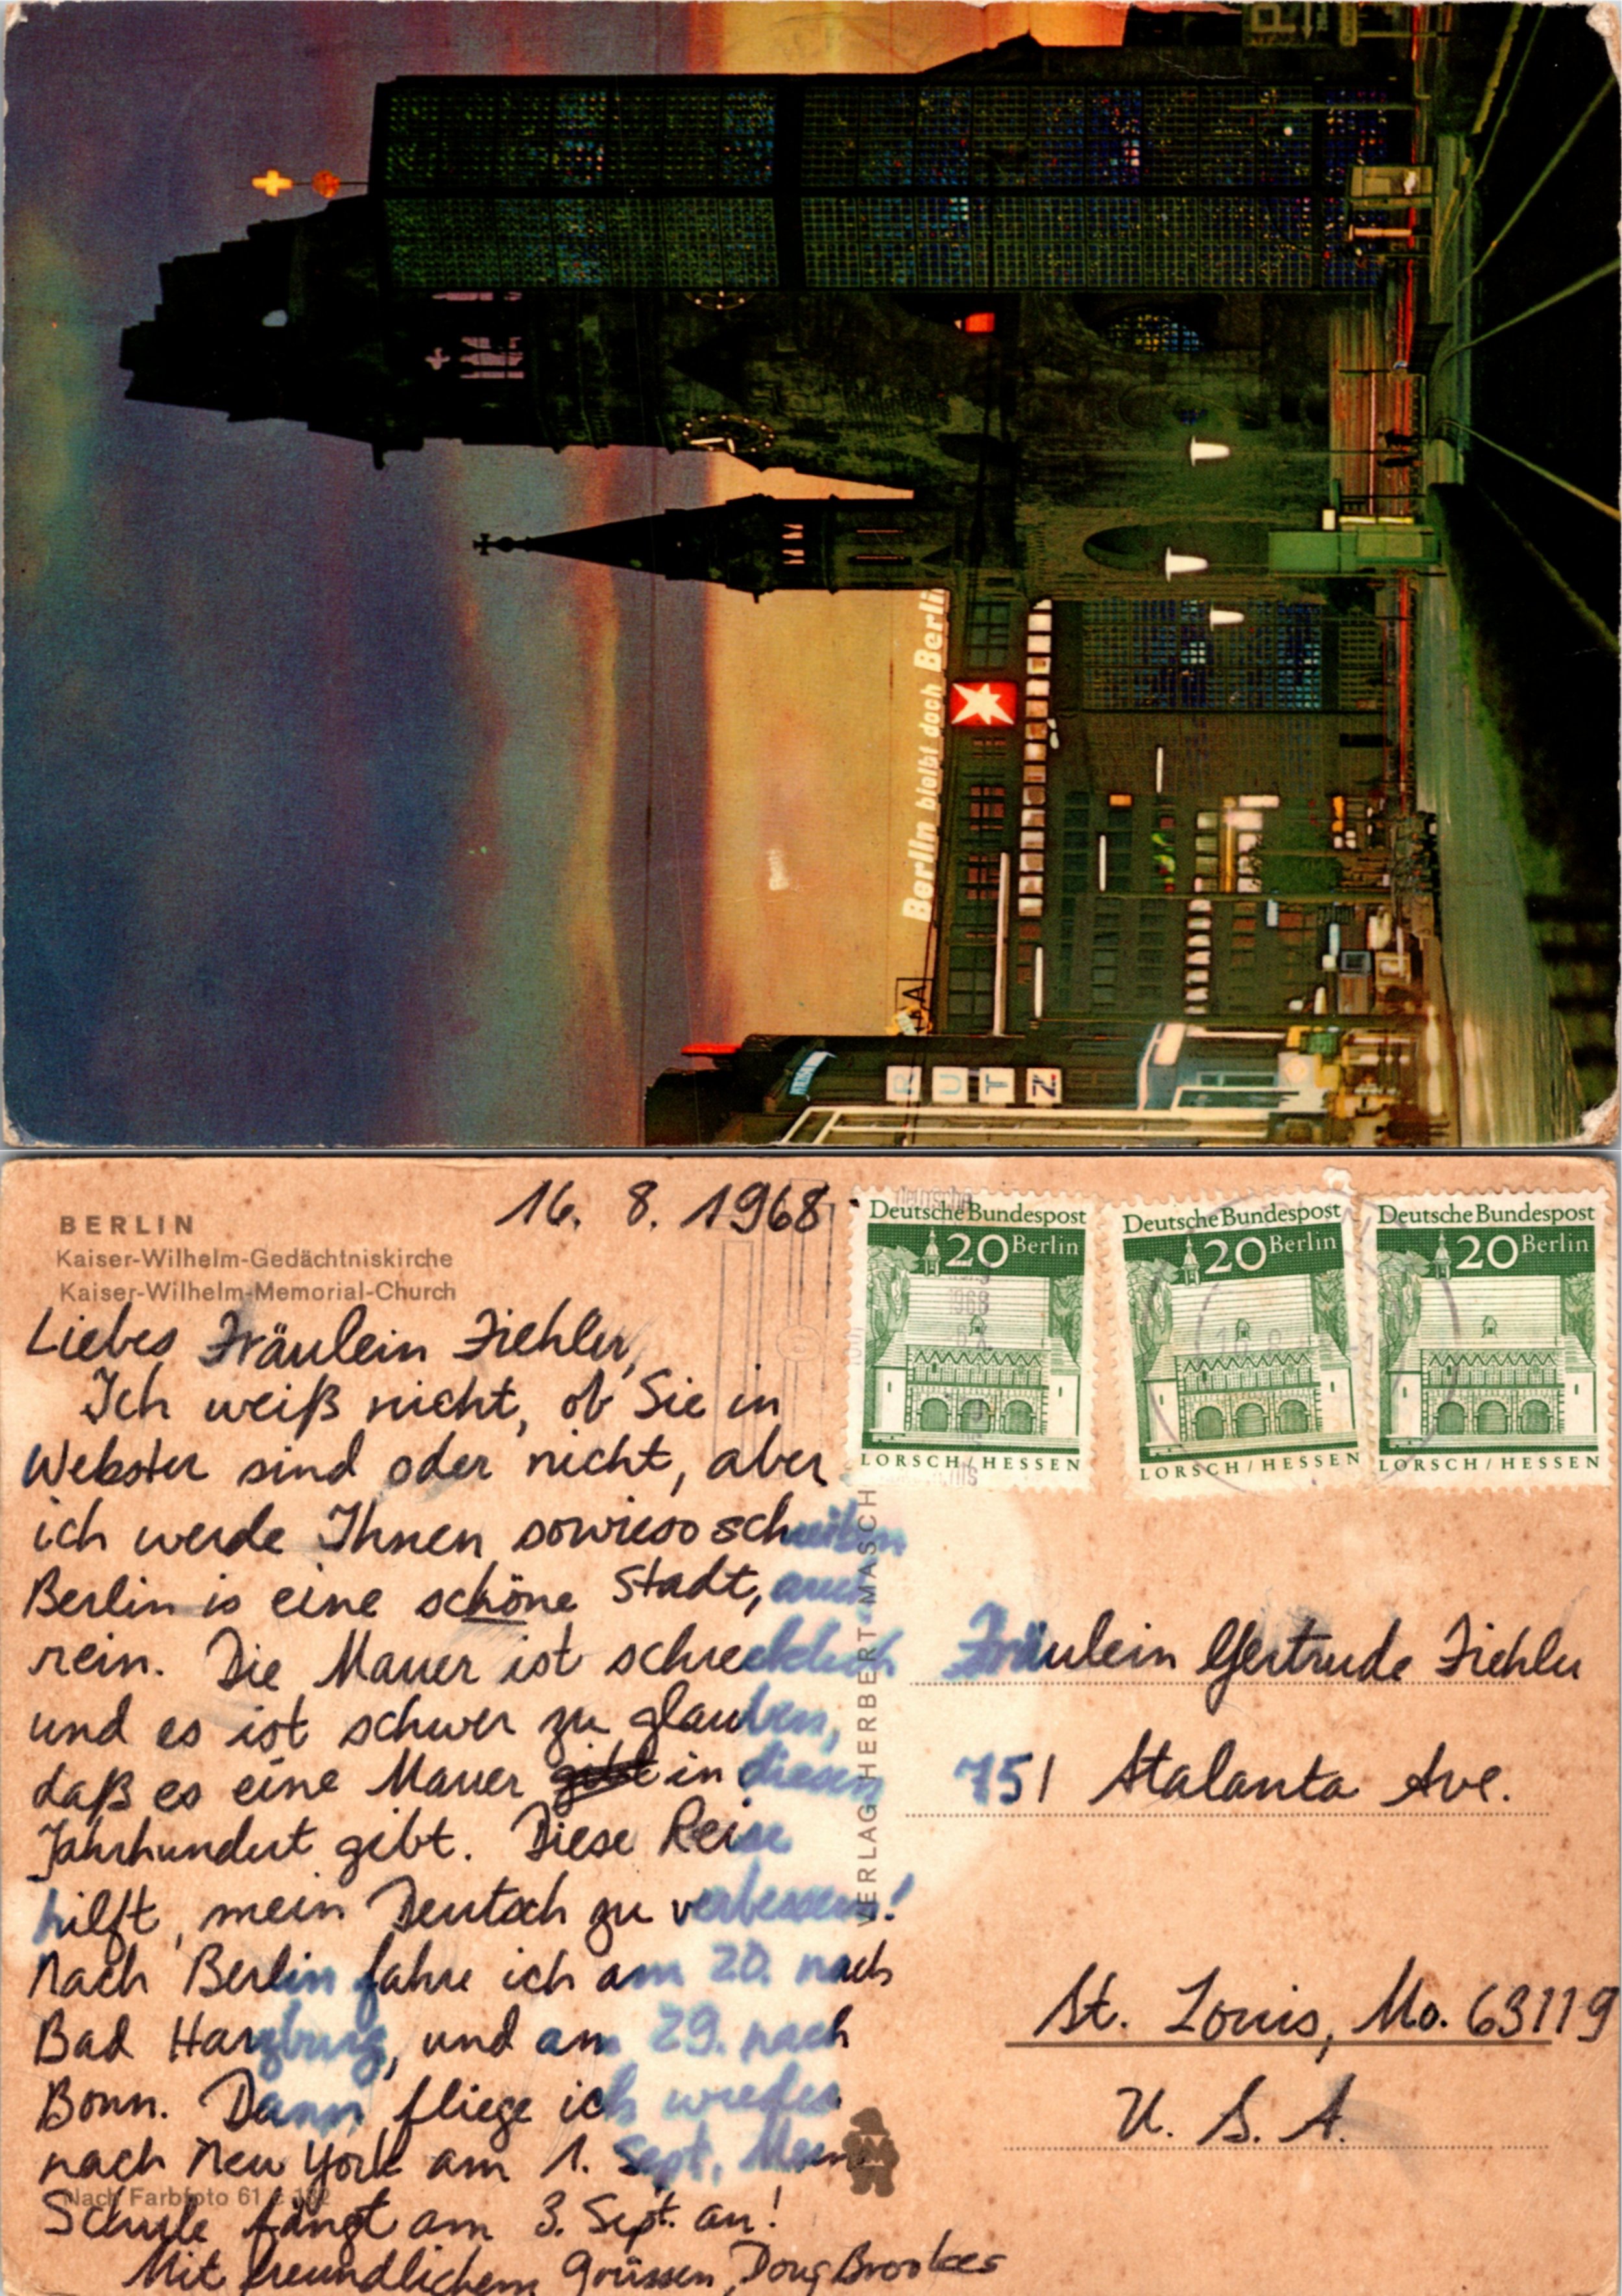 Berlin bleibt doch Berlin
RUTZ
BERLIN
Kaiser-Wilhelm-Gedächtniskirche
Kaiser-Wilhelm-Memorial-Church
16. 8. 1968
Liebes Fräulein Ziehler,
Ich weiß nicht, ob Sie in
Webster sind oder nicht, aber
ich werde Ihnen sowieso schreiben
Berlin is eine schöne Stadt, auch
rein. Die Mauer ist schrecklich
und es ist schwer zu glauben,
daß es eine Mauer gibt in diesem
Jahrhundert gibt. Diese Reise
hilft, mein Deutsch zu verbessern!
Nach Berlin fahre ich am 20. nach
Bad Harzburg, und am 29. nach
Bonn. Dann fliege ich wieder
nach New York am 1. Sept. Meine
Schule fängt am 3. Sept. an!
Mit freundlichem Grüssen, Doug Brookes
Nach Farbfoto 61
VERLAG HERBERT MASCH
Deutsche Bundespost
20 Berlin
LORSCH / HESSEN
Deutsche Bundespost
20 Berlin
LORSCH / HESSEN
Deutsche Bundespost
20 Berlin
LORSCH / HESSEN
Fräulein Gertrude Ziehler
751 Atalanta Ave.
St. Louis, Mo. 63119
U. S. A.